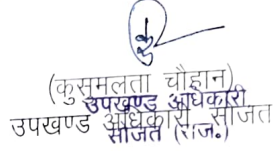 (कुसुमलता चौहान)
उपखण्ड अधिकारी
उपखण्ड अधिकारी, सोजत
सोजत (राज.)